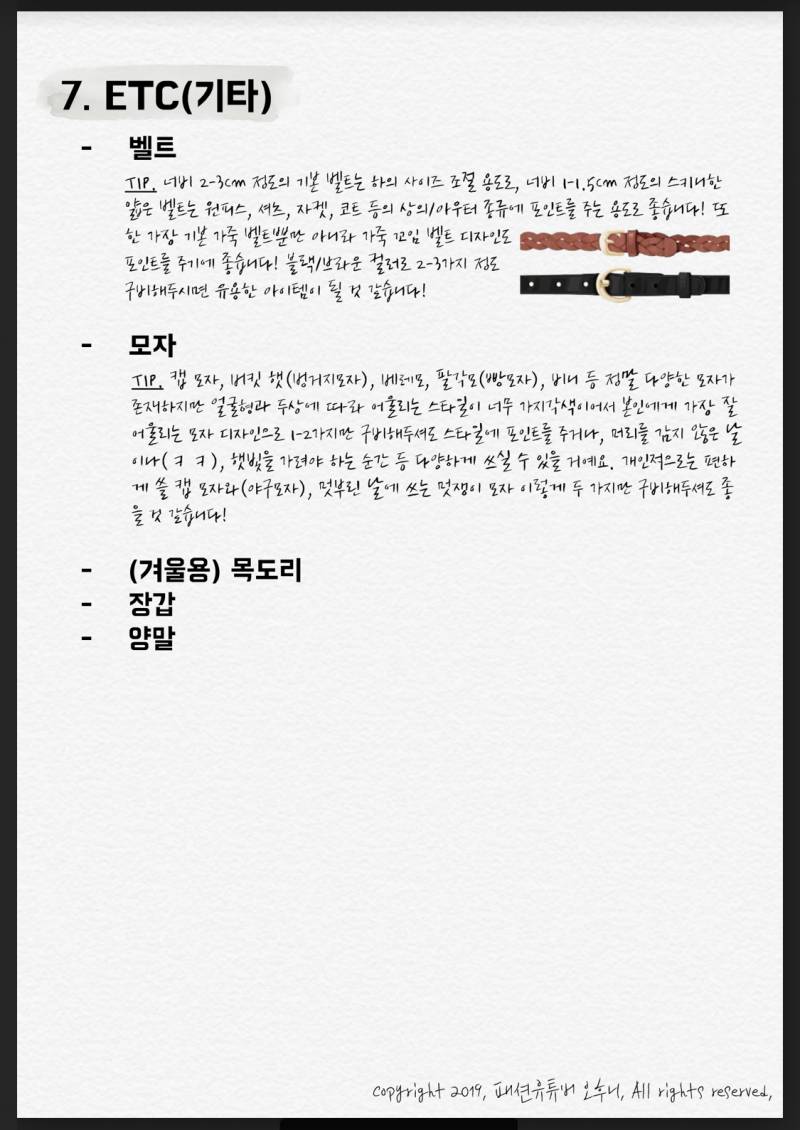 7. ETC(기타)
- 벨트
TIP. 너비 2-3cm 정도의 기본 벨트는 하의 사이즈 조절 용도로, 너비 1-1.5cm 정도의 스키니한
얇은 벨트는 원피스, 셔츠, 자켓, 코트 등의 상의/아우터 종류에 포인트를 주는 용도로 좋습니다! 또
한 가장 기본 가죽 벨트뿐만 아니라 가죽 꼬임 벨트 디자인도
포인트를 주기에 좋습니다! 블랙/브라운 컬러로 2-3가지 정도
구비해두시면 유용한 아이템이 될 것 같습니다!
- 모자
TIP. 캡 모자, 버킷 햇(벙거지모자), 베레모, 팔각모(빵모자), 비니 등 정말 다양한 모자가
존재하지만 얼굴형과 두상에 따라 어울리는 스타일이 너무 가지각색이어서 본인에게 가장 잘
어울리는 모자 디자인으로 1-2가지만 구비해두셔도 스타일에 포인트를 주거나, 머리를 감지 않은 날
이나(ㅋㅋ), 햇빛을 가려야 하는 순간 등 다양하게 쓰실 수 있을 거예요. 개인적으로는 편하
게 쓸 캡 모자와(야구모자), 멋부린 날에 쓰는 멋쟁이 모자 이렇게 두 가지만 구비해두셔도 좋
을 것 같습니다!
- (겨울용) 목도리
- 장갑
- 양말
copyright 2019, 패션유튜버 오후니, All rights reserved,